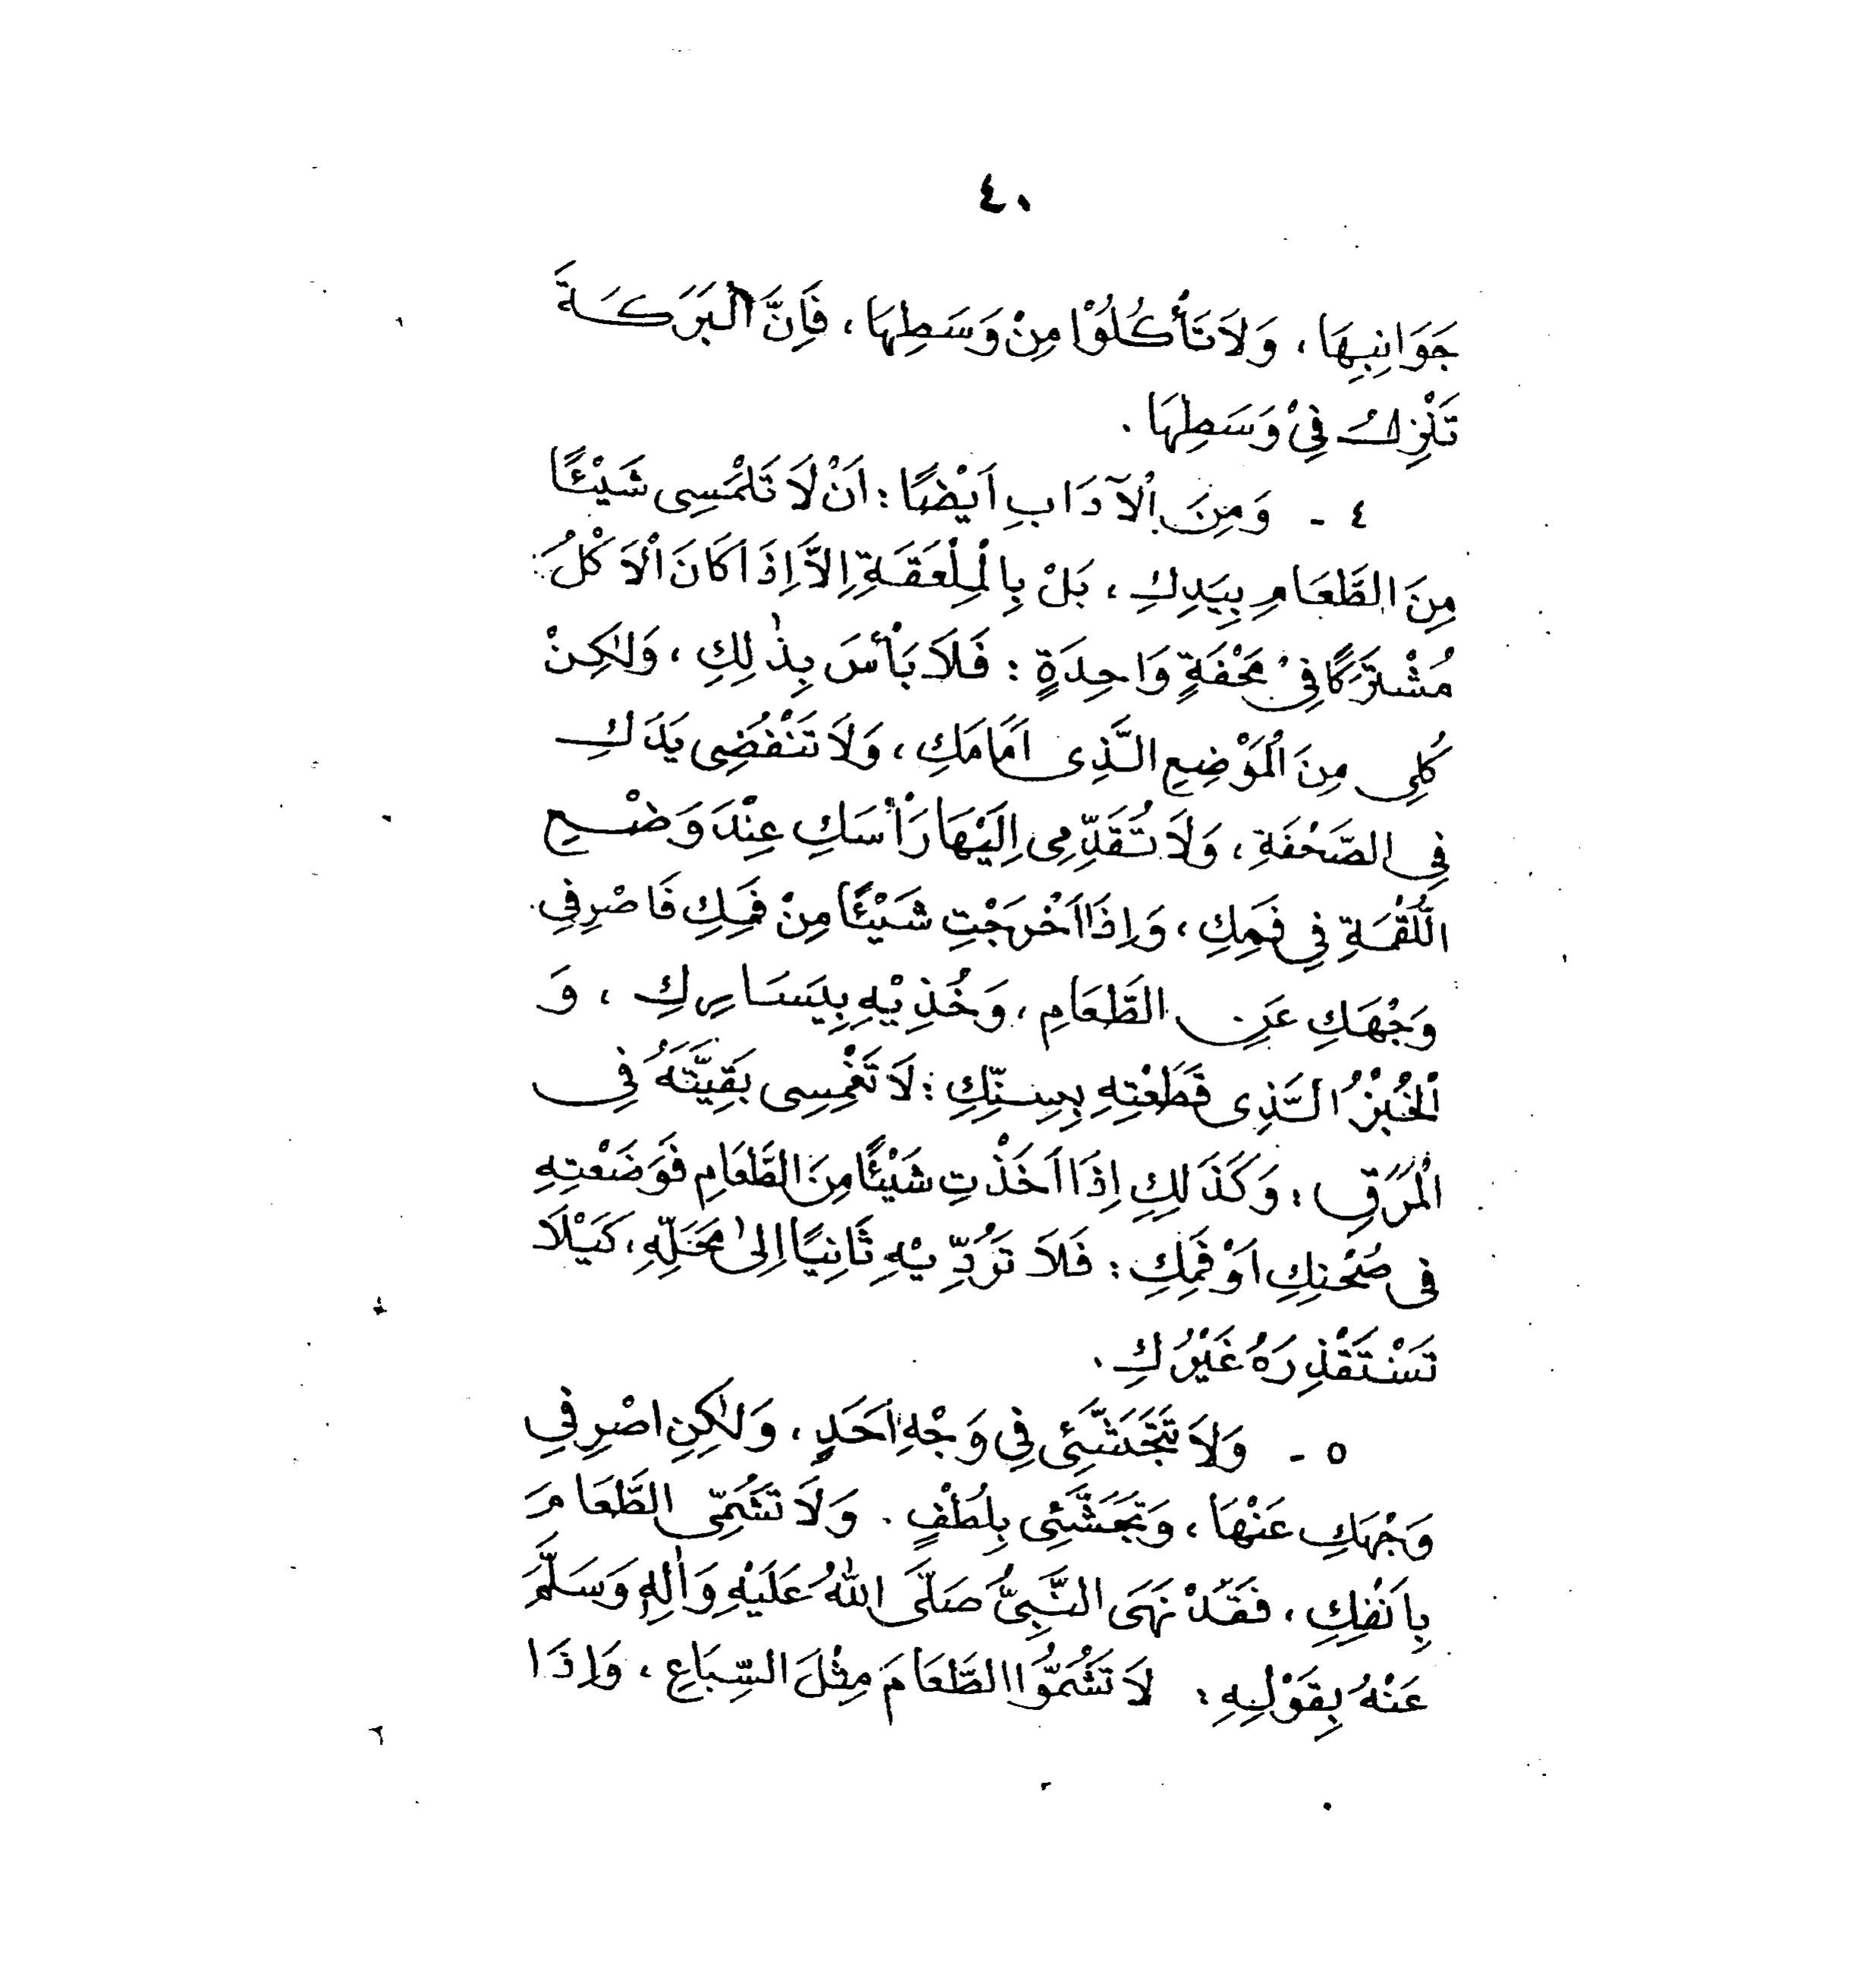 ٤٠
جَوَانِبِهَا، وَلَا تَأْكُلُوْا مِنْ وَسَطِهَا، فَاِنَّ الْبَرَكَةَ
تَنْزِلُ فِيْ وَسَطِهَا.
٤ - وَمِنَ اْلآدَابِ اَيْضًا: اَنْ لَا تَلْمَسِى شَيْئًا
مِنَ الطَّعَامِ بِيَدِكِ، بَلْ بِالْمِلْعَقَةِ اِلَّا اِذَا كَانَ اْلاَكْلُ
مُشْتَرَكًا فِيْ صَحْفَةٍ وَاحِدَةٍ: فَلَا بَأْسَ بِذٰلِكِ، وَلٰكِنْ
كُلِى مِنَ الْمَوْضِعِ الَّذِى اَمَامَكِ، وَلَا تَنْفُضِى يَدَكِ
فِى الصَّحْفَةِ، وَلَا تُقَدِّمِى اِلَيْهَا رَأْسَكِ عِنْدَ وَضْعِ
اللُّقْمَةِ فِي فَمِكِ، وَاِذَا اَخْرَجْتِ شَيْئًا مِنْ فَمِكِ فَاصْرِفِي
وَجْهَكِ عَنِ الطَّعَامِ، وَخُذِيْهِ بِيَسَارِكِ، وَ
الْخُبْزُ الَّذِى قَطَعْتِهِ بِسِنِّكِ: لَا تَغْمِسِى بَقِيَّتَهُ فِى
الْمَرَقِ: وَكَذَلِكِ اِذَا اَخَذْتِ شَيْئًا مِنَ الطَّعَامِ فَوَضَعْتِهِ
فِى صَحْنِكِ اَوْ فَمِكِ: فَلَا تَرُدِّيْهِ ثَانِيًا اِلىٰ مَحَلِّهِ، كَيْلَا
تَسْتَقْذِرَهُ غَيْرُكِ.
٥ - وَلَا تَتَجَشَّئِى فِي وَجْهِ اَحَدٍ، وَلٰكِنِ اصْرِفِي
وَجْهَكِ عَنْهَا، وَتَجَشَّئِى بِلُطْفٍ. وَلَا تَشَمِّى الطَّعَامَ
بِاَنْفِكِ، فَقَدْ نَهَى النَّبِيُّ صَلَّى اللّٰهُ عَلَيْهِ وَاٰلِهِ وَسَلَّمَ
عَنْهُ بِقَوْلِهِ: لَا تَشُمُّوْا الطَّعَامَ مِثْلَ السِّبَاعِ، وَاِذَا